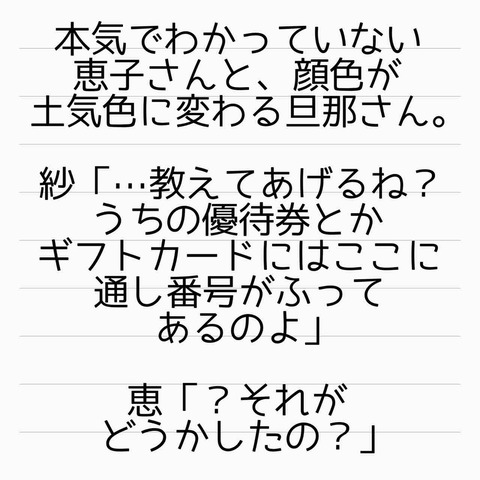 本気でわかっていない
恵子さんと、顔色が
土気色に変わる旦那さん。
紗「…教えてあげるね？
うちの優待券とか
ギフトカードにはここに
通し番号がふって
あるのよ」
恵「？それが
どうかしたの？」